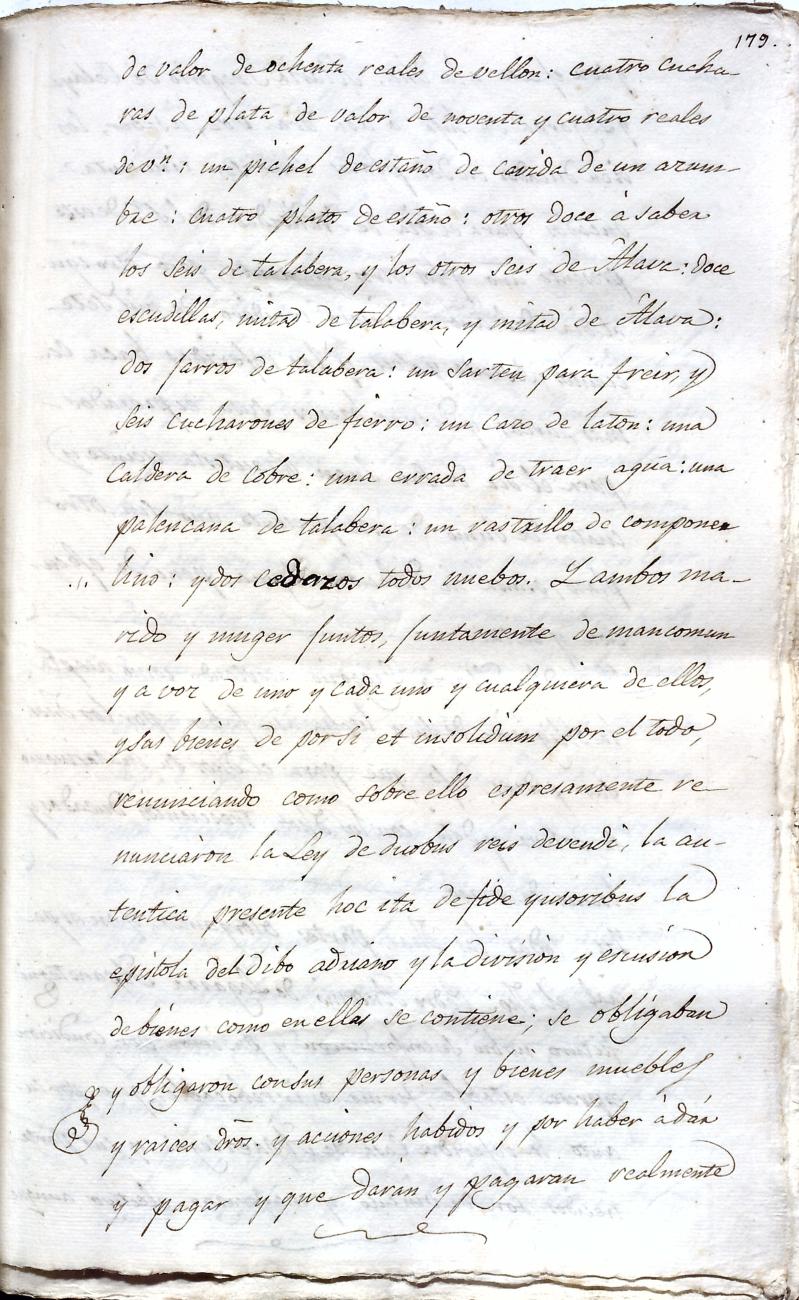 179.
de valor de ochenta reales de vellon: cuatro cucha-
ras de plata de valor de noventa y cuatro reales
de vn: un pichel de estaño de cavida de un azum-
bre: cuatro platos de estaño: otros doce à saber
los seis de talabera, y los otros seis de Alava: doce
escudillas, mitad de talabera, y mitad de Alava:
dos jarros de talabera: un sarten para freir, y
seis cucharones de fierro: un cazo de laton: una
caldera de cobre: una errada de traer agua: una
palencana de talabera: un rastrillo de componer
lino: y dos cedazos todos nuebos. Y ambos ma-
rido y muger juntos, juntamente de mancomun
y à voz de uno y cada uno y cualquiera de ellos,
y sus bienes de por si et insolidum por el todo,
renunciando como sobre ello espresamente re-
nunciaron la Ley de duobus reis devendi, la au-
tentica presente hoc ita de fide yusoribus la
epistola del dibo adriano y la division y escusion
de bienes como en ellas se contiene; se obligaban
y obligaron con sus personas y bienes muebles
y raices dros. y acciones habidos y por haber à dar
y pagar y que daran y pagaran realmente